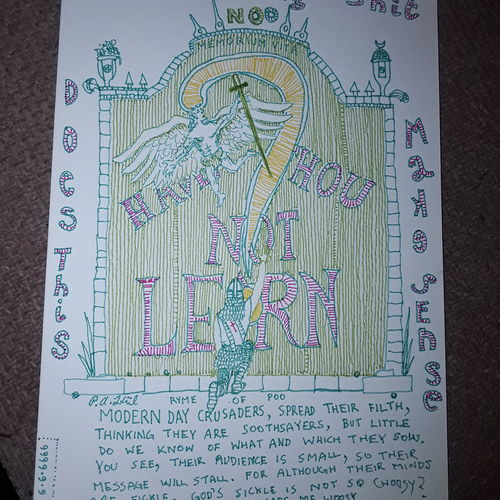 NOO
MEMORIUM VITA
HAVE THOU
NOT
LEARN
DOES THiS
MAKE SENSE
RYME OF POO
MODERN DAY CRUSADERS, SPREAD THEIR FILTH,
THINKING THEY ARE SOOTHSAYERS, BUT LITTLE
DO WE KNOW OF WHAT AND WHICH THEY SOW.
YOU SEE, THEIR AUDIENCE IS SMALL, SO THEIR
MESSAGE WILL STALL. FOR ALTHOUGH THEIR MINDS
ARE FICKLE, GOD'S SICKLE IS NOT SO CHOOSY?
9999-9-9